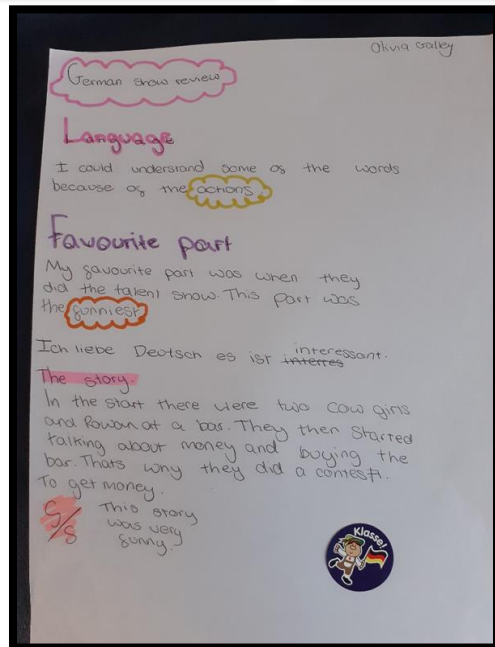 Olivia Galley
German show review
Language
I could understand some of the words
because of the actions.
Favourite part
My favourite part was when they
did the talent show. This part was
the funniest
Ich liebe Deutsch es ist interres interessant.
The story.
In the start there were two cow girls
and Rowan at a bar. They then started
talking about money and buying the
bar. Thats why they did a contest.
To get money.
5/5
This story
was very
funny.
Klasse!